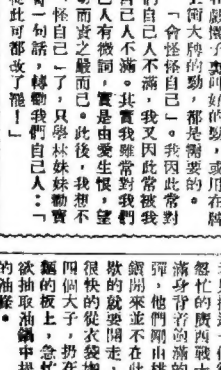 裏叫好的勁,或用在牌
上衝大牌的勁,都是需要的。
「會怪怪自己」。我因此常對
們自己人不滿,我又因此常被我
己人不滿。其實我雖常對我們
己人有微詞,實是由愛生恨,望
切而責之嚴而已。此後,我想不
怪自己」了,只學林妹妹勸寶
一句話,轉勸我們自己人:「
從此可都改了罷!」
忙的廣西戰士
滿身背着的滿的
彈,他們剛由桃
鎮開來並不在此
歇的就要開走,
很快的從衣袋掏
四個大子,扔在
麵的板上,急忙
欲抽取油鍋中
的油條。